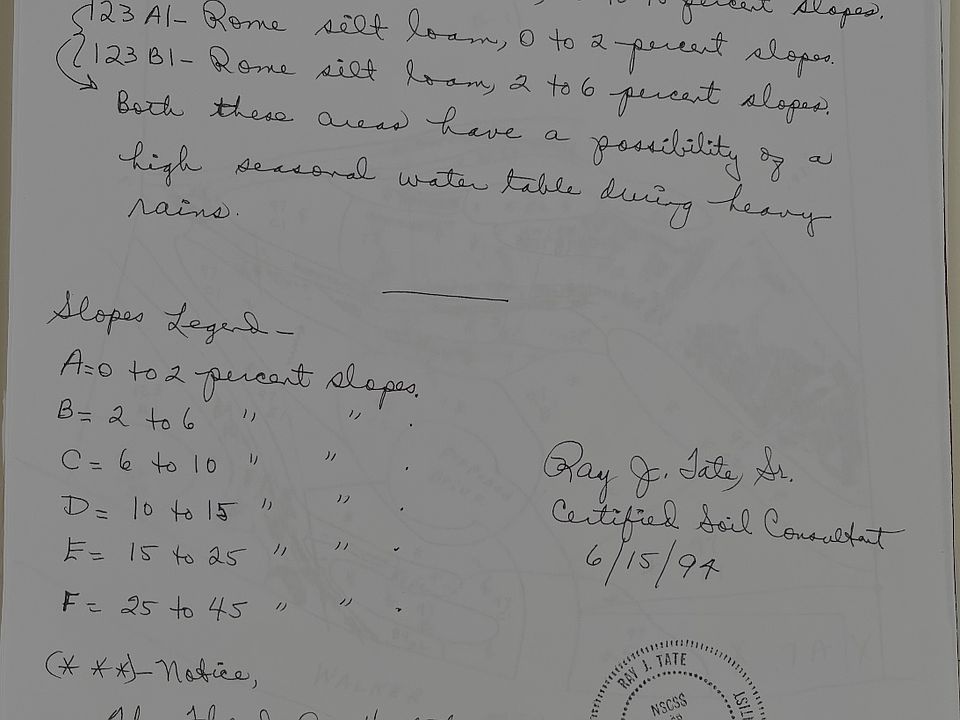 percent slopes.
123 A1- Rome silt loam, 0 to 2 percent slopes.
123 B1- Rome silt loam, 2 to 6 percent slopes.
Both these areas have a possibility of a
high seasonal water table during heavy
rains.
Slopes Legend-
A=0 to 2 percent slopes.
B= 2 to 6 " " .
C= 6 to 10 " " .
D= 10 to 15 " " .
E= 15 to 25 " " .
F= 25 to 45 " " .
Ray J. Tate, Sr.
Certified Soil Consultant
6/15/94
(***)-Notice,
RAY J. TATE
NSCSS